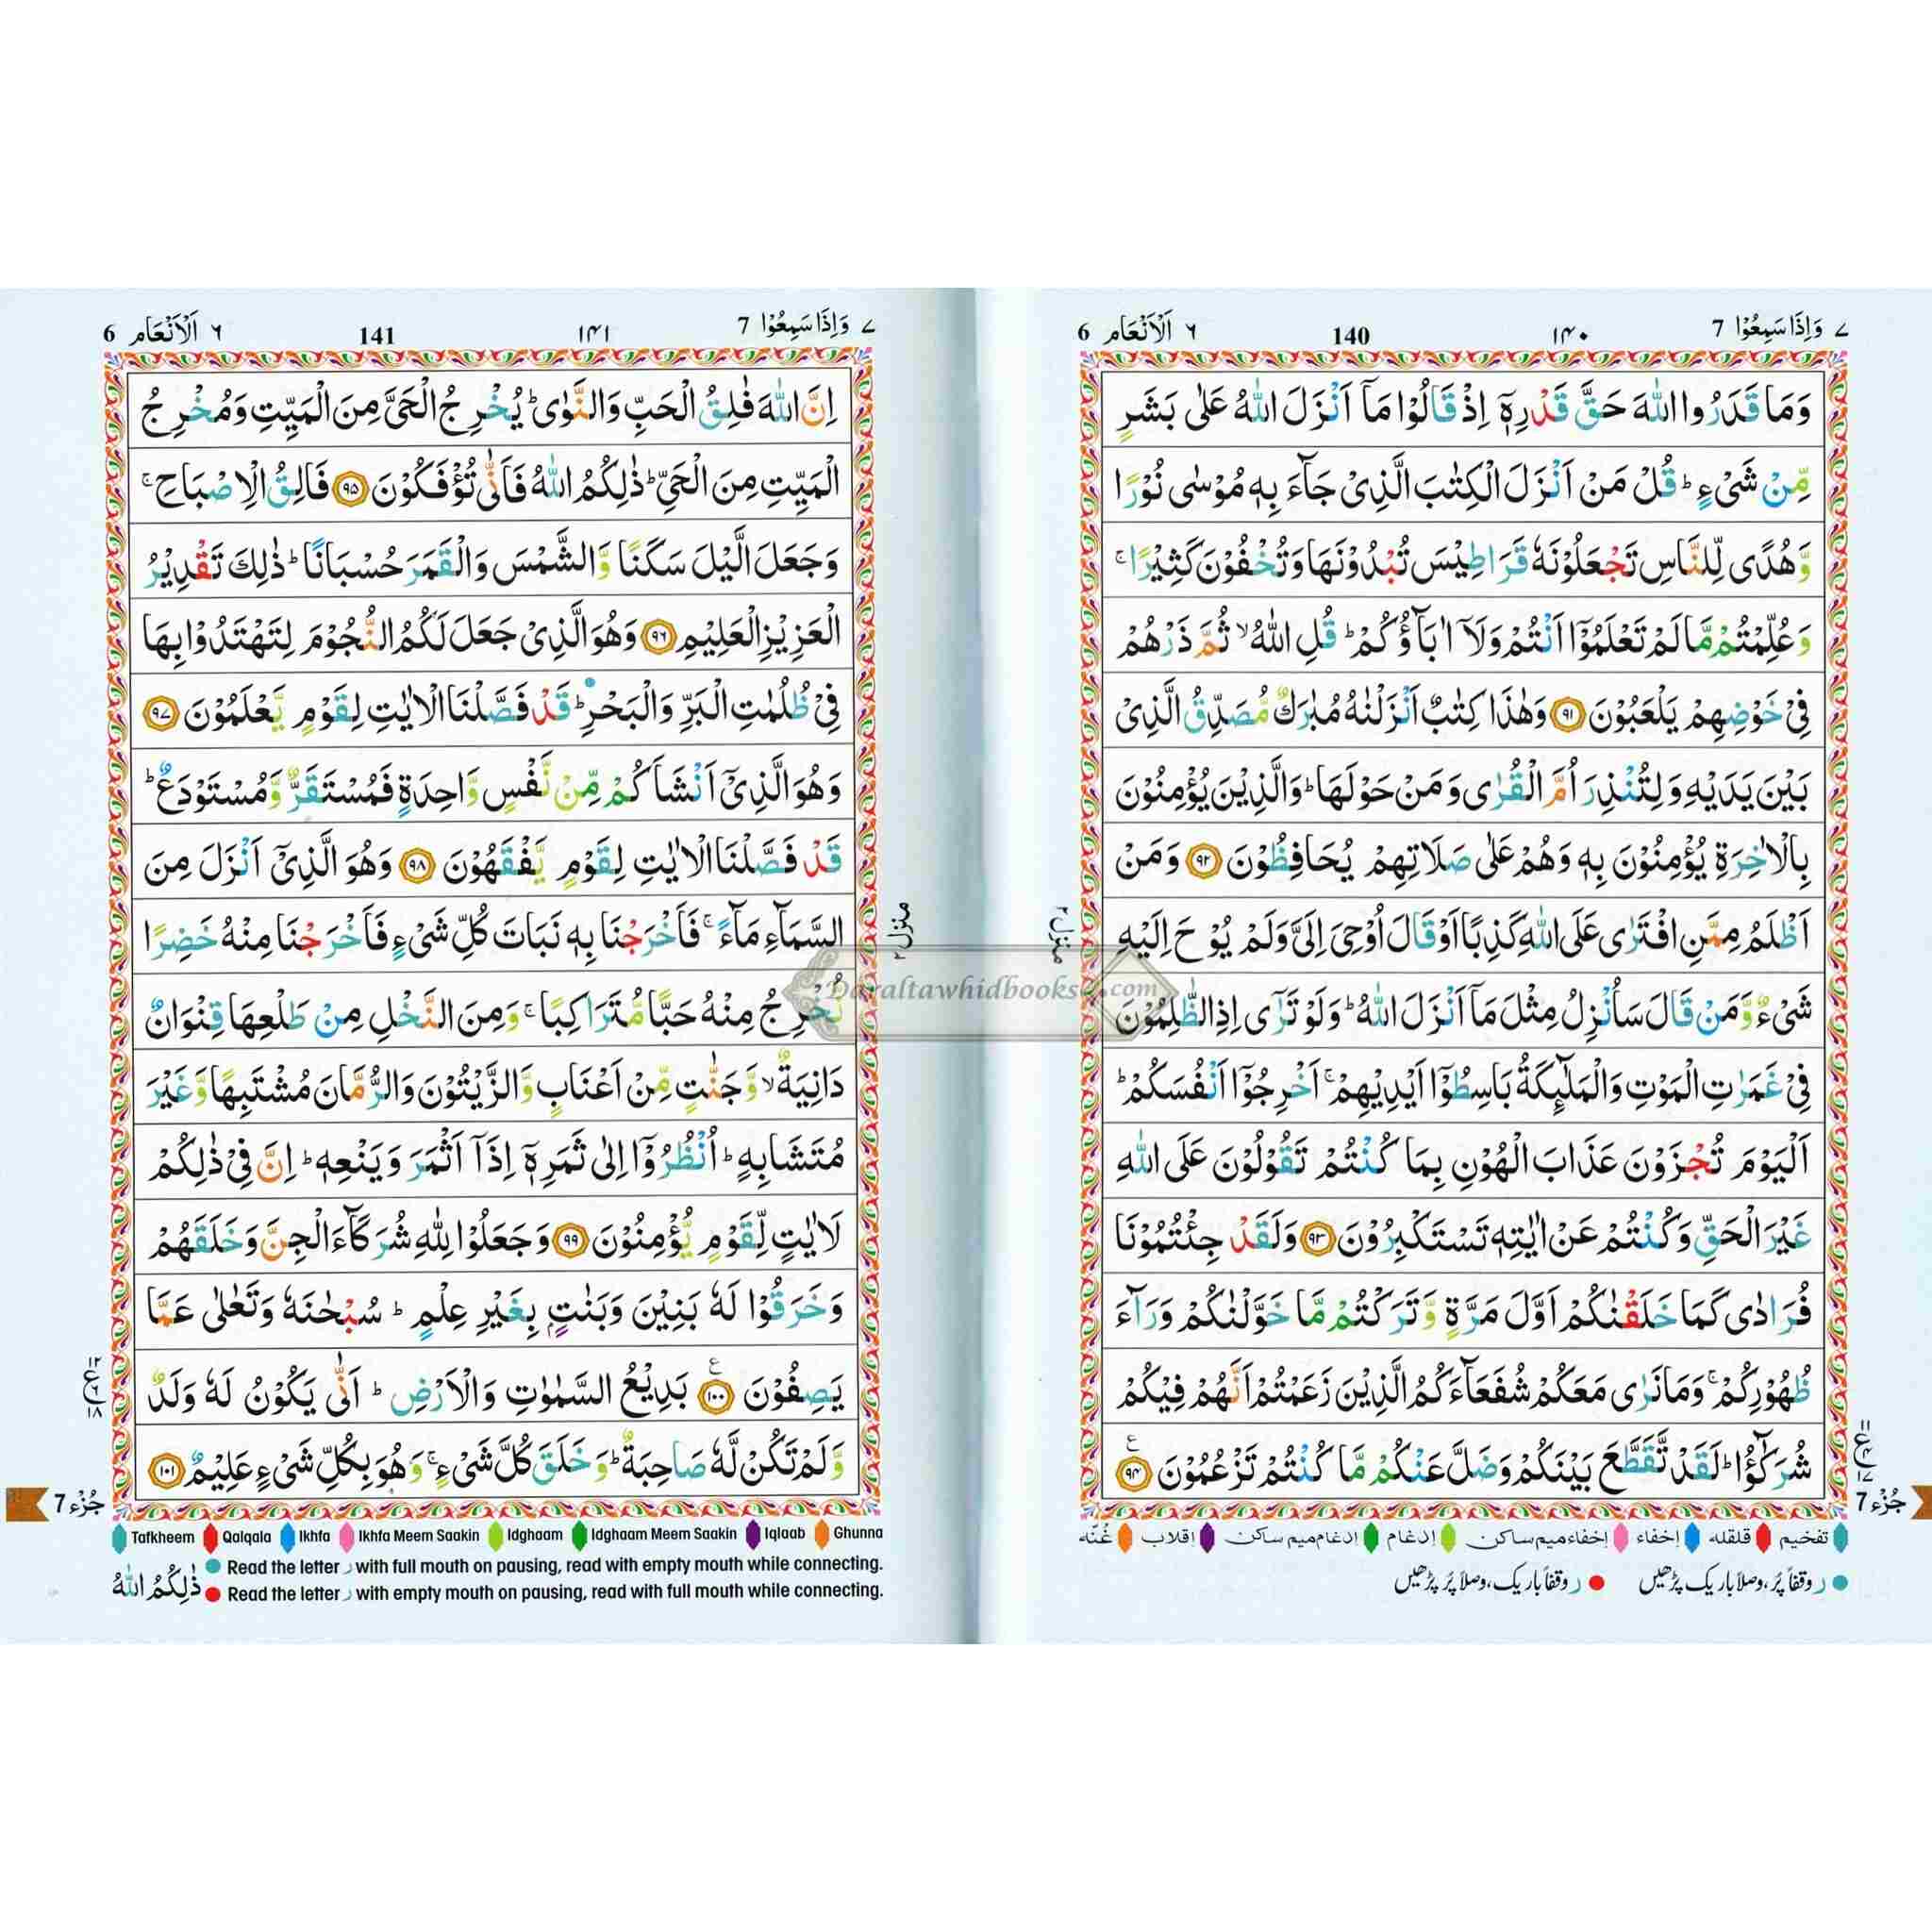 ٧ وَاِذَا سَمِعُوْا 7 ١٤٠ 140 ٦ اَلْاَنْعَام 6
وَمَا قَدَرُوا اللّٰهَ حَقَّ قَدْرِهٖٓ اِذْ قَالُوْا مَآ اَنْزَلَ اللّٰهُ عَلٰى بَشَرٍ
مِّنْ شَىْءٍ ؕ قُلْ مَنْ اَنْزَلَ الْكِتٰبَ الَّذِىْ جَآءَ بِهٖ مُوْسٰى نُوْرًا
وَّهُدًى لِّلنَّاسِ تَجْعَلُوْنَهٗ قَرَاطِيْسَ تُبْدُوْنَهَا وَتُخْفُوْنَ كَثِيْرًا ۚ
وَعُلِّمْتُمْ مَّا لَمْ تَعْلَمُوْٓا اَنْتُمْ وَلَآ اٰبَآؤُكُمْ ؕ قُلِ اللّٰهُ ۙ ثُمَّ ذَرْهُمْ
فِىْ خَوْضِهِمْ يَلْعَبُوْنَ ٩١ وَهٰذَا كِتٰبٌ اَنْزَلْنٰهُ مُبٰرَكٌ مُّصَدِّقُ الَّذِىْ
بَيْنَ يَدَيْهِ وَلِتُنْذِرَ اُمَّ الْقُرٰى وَمَنْ حَوْلَهَا ؕ وَالَّذِيْنَ يُؤْمِنُوْنَ
بِالْاٰخِرَةِ يُؤْمِنُوْنَ بِهٖ وَهُمْ عَلٰى صَلَاتِهِمْ يُحَافِظُوْنَ ٩٢ وَمَنْ
اَظْلَمُ مِمَّنِ افْتَرٰى عَلَى اللّٰهِ كَذِبًا اَوْ قَالَ اُوْحِىَ اِلَىَّ وَلَمْ يُوْحَ اِلَيْهِ
شَىْءٌ وَّمَنْ قَالَ سَاُنْزِلُ مِثْلَ مَآ اَنْزَلَ اللّٰهُ ؕ وَلَوْ تَرٰٓى اِذِ الظّٰلِمُوْنَ
فِىْ غَمَرٰتِ الْمَوْتِ وَالْمَلٰٓئِكَةُ بَاسِطُوْٓا اَيْدِيْهِمْ ۚ اَخْرِجُوْٓا اَنْفُسَكُمْ ؕ
اَلْيَوْمَ تُجْزَوْنَ عَذَابَ الْهُوْنِ بِمَا كُنْتُمْ تَقُوْلُوْنَ عَلَى اللّٰهِ
غَيْرَ الْحَقِّ وَكُنْتُمْ عَنْ اٰيٰتِهٖ تَسْتَكْبِرُوْنَ ٩٣ وَلَقَدْ جِئْتُمُوْنَا
فُرَادٰى كَمَا خَلَقْنٰكُمْ اَوَّلَ مَرَّةٍ وَّتَرَكْتُمْ مَّا خَوَّلْنٰكُمْ وَرَآءَ
ظُهُوْرِكُمْ ۚ وَمَا نَرٰى مَعَكُمْ شُفَعَآءَكُمُ الَّذِيْنَ زَعَمْتُمْ اَنَّهُمْ فِيْكُمْ
شُرَكٰٓؤُا ؕ لَقَدْ تَّقَطَّعَ بَيْنَكُمْ وَضَلَّ عَنْكُمْ مَّا كُنْتُمْ تَزْعُمُوْنَ ٩٤ ع
منزل ٢
١١ ع ٤ ١٧
جُزْء 7
تفخیم قلقلہ إخفاء إخفاء میم ساکن إدغام إدغام میم ساکن إقلاب غُنّہ
ر وقفاً پُر، وصلاً باریک پڑھیں ر وقفاً باریک، وصلاً پُر پڑھیں
٧ وَاِذَا سَمِعُوْا 7 ١٤١ 141 ٦ اَلْاَنْعَام 6
اِنَّ اللّٰهَ فٰلِقُ الْحَبِّ وَالنَّوٰى ؕ يُخْرِجُ الْحَىَّ مِنَ الْمَيِّتِ وَمُخْرِجُ
الْمَيِّتِ مِنَ الْحَىِّ ؕ ذٰلِكُمُ اللّٰهُ فَاَنّٰى تُؤْفَكُوْنَ ٩٥ فَالِقُ الْاِصْبَاحِ ۚ
وَجَعَلَ الَّيْلَ سَكَنًا وَّالشَّمْسَ وَالْقَمَرَ حُسْبَانًا ؕ ذٰلِكَ تَقْدِيْرُ
الْعَزِيْزِ الْعَلِيْمِ ٩٦ وَهُوَ الَّذِىْ جَعَلَ لَكُمُ النُّجُوْمَ لِتَهْتَدُوْا بِهَا
فِىْ ظُلُمٰتِ الْبَرِّ وَالْبَحْرِ ؕ قَدْ فَصَّلْنَا الْاٰيٰتِ لِقَوْمٍ يَّعْلَمُوْنَ ٩٧
وَهُوَ الَّذِىْٓ اَنْشَاَكُمْ مِّنْ نَّفْسٍ وَّاحِدَةٍ فَمُسْتَقَرٌّ وَّمُسْتَوْدَعٌ ؕ
قَدْ فَصَّلْنَا الْاٰيٰتِ لِقَوْمٍ يَّفْقَهُوْنَ ٩٨ وَهُوَ الَّذِىْٓ اَنْزَلَ مِنَ
السَّمَآءِ مَآءً ۚ فَاَخْرَجْنَا بِهٖ نَبَاتَ كُلِّ شَىْءٍ فَاَخْرَجْنَا مِنْهُ خَضِرًا
نُّخْرِجُ مِنْهُ حَبًّا مُّتَرَاكِبًا ۚ وَمِنَ النَّخْلِ مِنْ طَلْعِهَا قِنْوَانٌ
دَانِيَةٌ ۙ وَّجَنّٰتٍ مِّنْ اَعْنَابٍ وَّالزَّيْتُوْنَ وَالرُّمَّانَ مُشْتَبِهًا وَّغَيْرَ
مُتَشَابِهٍ ؕ اُنْظُرُوْٓا اِلٰى ثَمَرِهٖٓ اِذَآ اَثْمَرَ وَيَنْعِهٖ ؕ اِنَّ فِىْ ذٰلِكُمْ
لَاٰيٰتٍ لِّقَوْمٍ يُّؤْمِنُوْنَ ٩٩ وَجَعَلُوْا لِلّٰهِ شُرَكَآءَ الْجِنَّ وَخَلَقَهُمْ
وَخَرَقُوْا لَهٗ بَنِيْنَ وَبَنٰتٍۭ بِغَيْرِ عِلْمٍ ؕ سُبْحٰنَهٗ وَتَعٰلٰى عَمَّا
يَصِفُوْنَ ١٠٠ ع بَدِيْعُ السَّمٰوٰتِ وَالْاَرْضِ ؕ اَنّٰى يَكُوْنُ لَهٗ وَلَدٌ
وَّلَمْ تَكُنْ لَّهٗ صَاحِبَةٌ ؕ وَخَلَقَ كُلَّ شَىْءٍ ۚ وَهُوَ بِكُلِّ شَىْءٍ عَلِيْمٌ ١٠١
منزل ٢
١٢ ع ٦ ١٨
جُزْء 7
Tafkheem Qalqala Ikhfa Ikhfa Meem Saakin Idghaam Idghaam Meem Saakin Iqlaab Ghunna
Read the letter ر with full mouth on pausing, read with empty mouth while connecting.
ذٰلِكُمُ اللّٰهُ Read the letter ر with empty mouth on pausing, read with full mouth while connecting.
Daraltawhidbooks.com